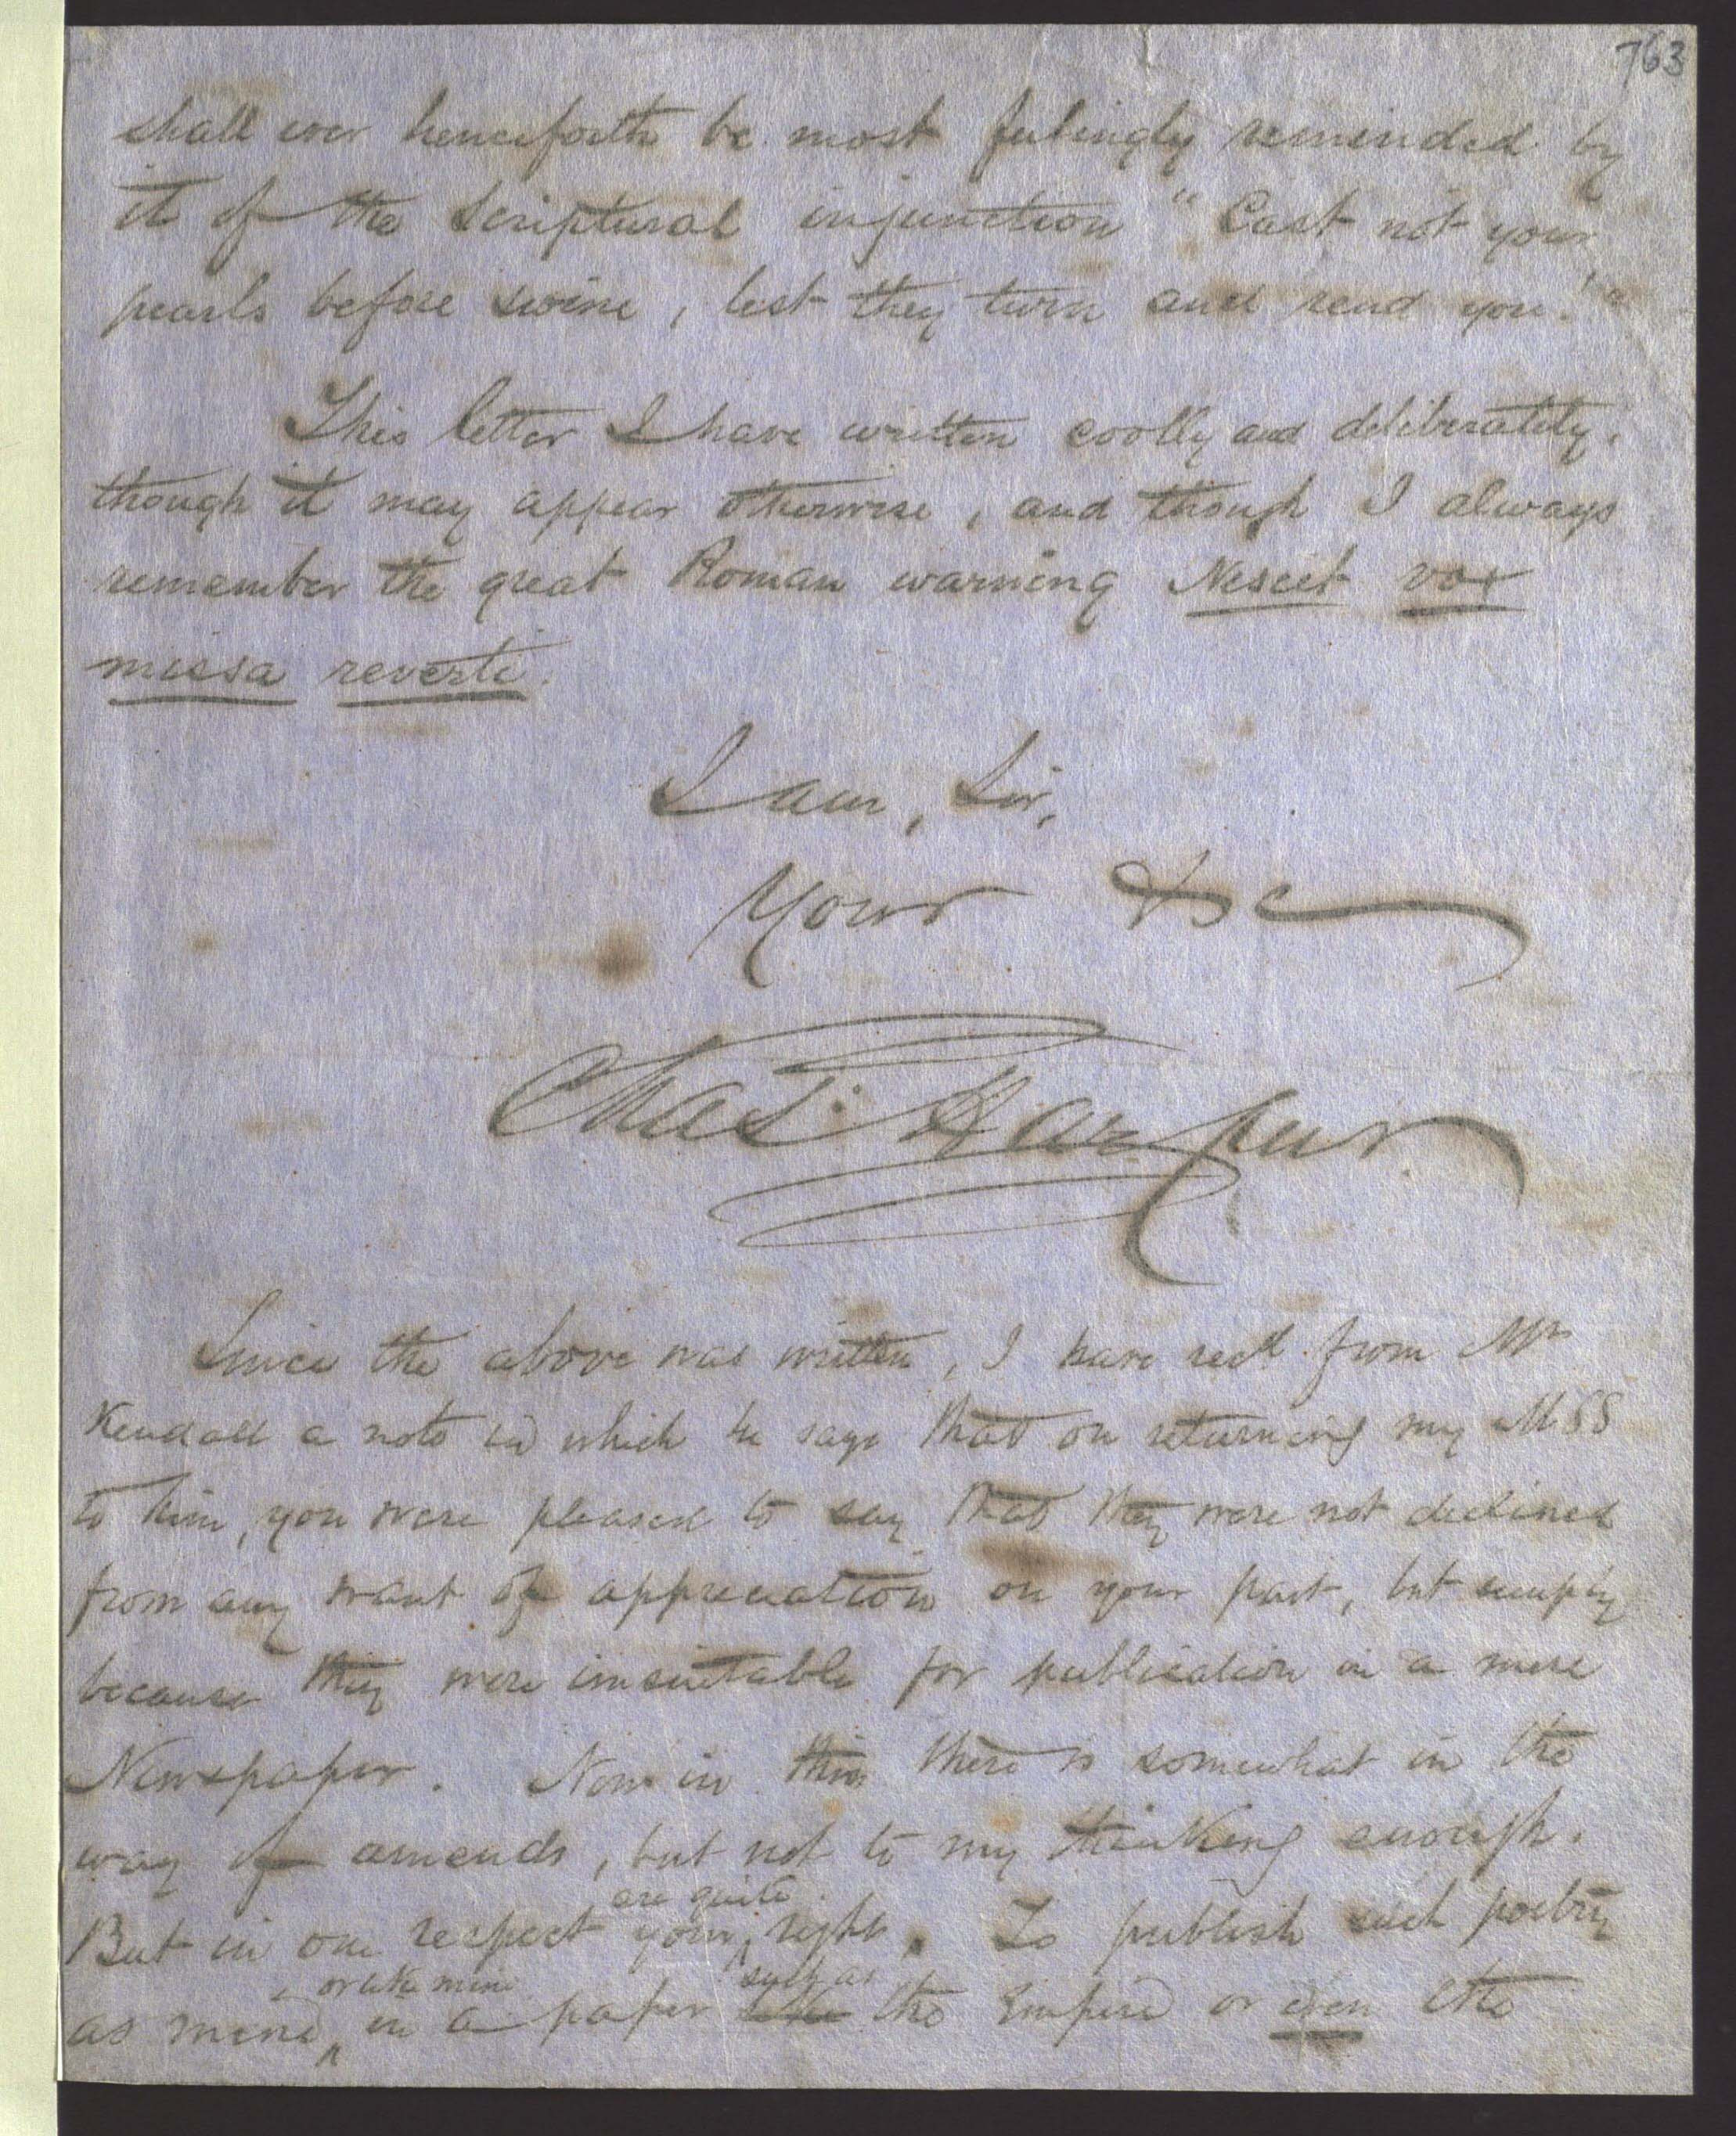 763
shall ever henceforth be most feelingly reminded by
it of the Scriptural injunction "Cast not your
pearls before swine, lest they turn and rend you!"
This letter I have written coolly and deliberately,
though it may appear otherwise, and though I always
remember the great Roman warning Nescit vox
missa reverti.
I am, Sir,
Yours &c
Chas. Harpur
Since the above was written, I have recd. from Mr
Kendall a note in which he says that on returning my MSS
to him, you were pleased to say that they were not declined
from any want of appreciation on your part, but simply
because they were unsuitable for publication in a mere
Newspaper. Now in this there is somewhat in the
way of amends, but not to my thinking enough.
are quite
But in one respect you right. To publish such poetry
or like mine such as
as mine, in a paper like the Empire or even the